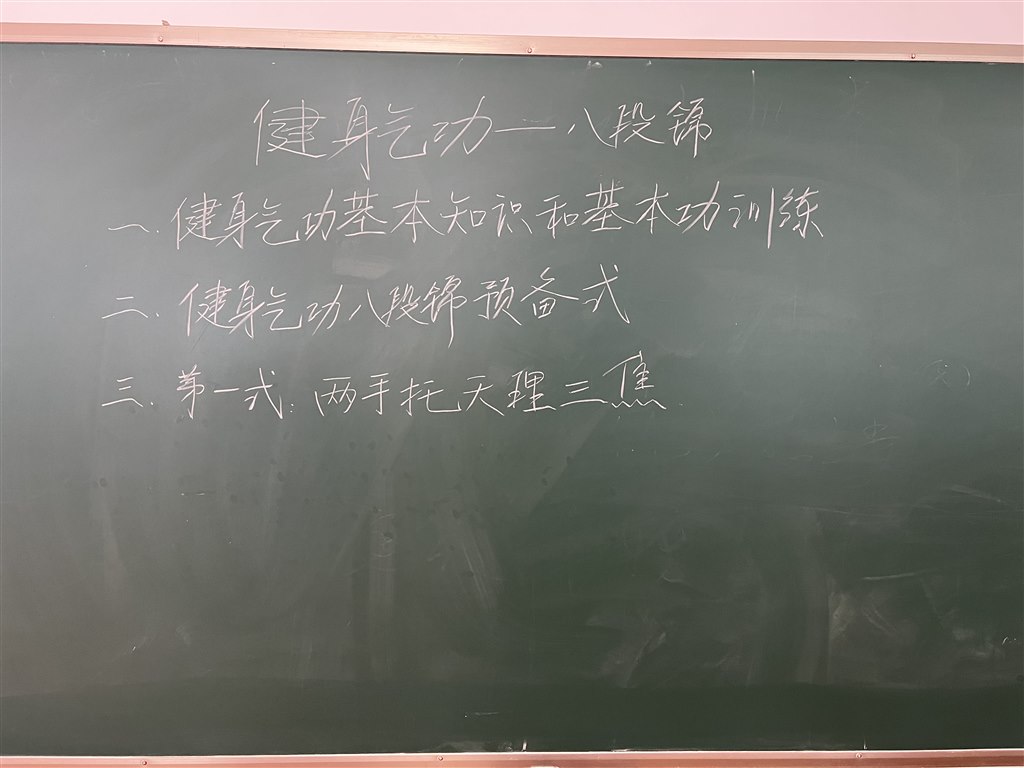 健身气功—八段锦
一.健身气功基本知识和基本功训练
二.健身气功八段锦预备式
三.第一式:两手托天理三焦